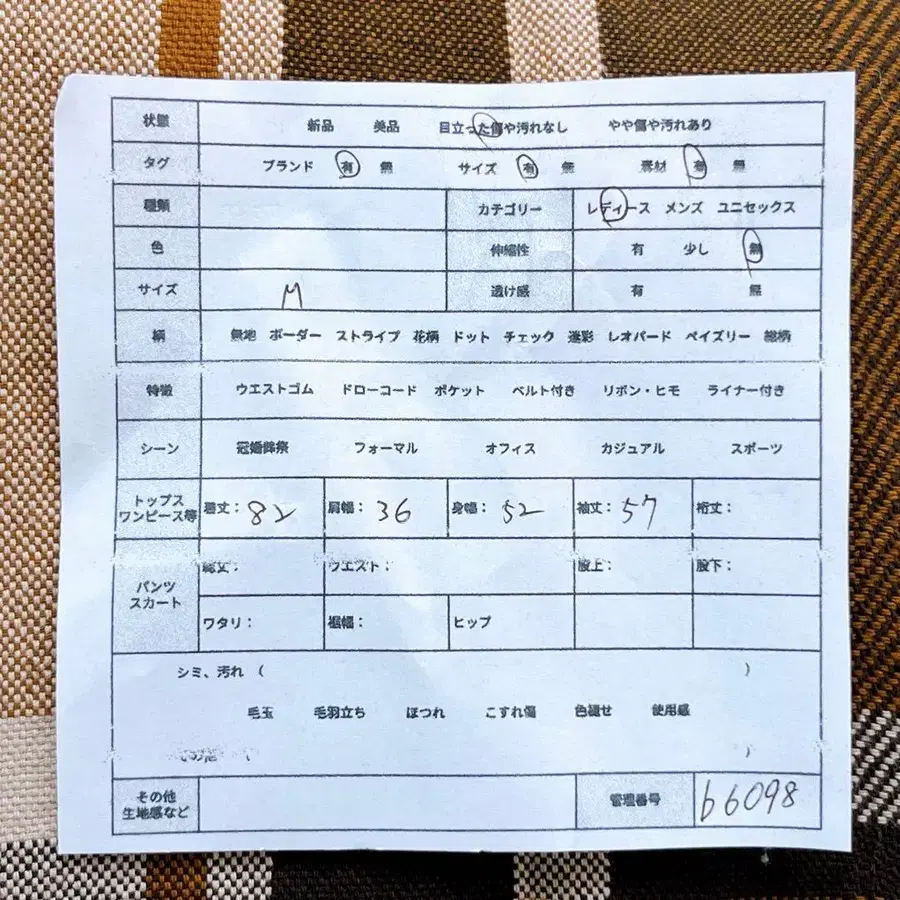 状態 新品 美品 目立った傷や汚れなし やや傷や汚れあり
タグ ブランド 有 無 サイズ 有 無 素材 有 無
種類 カテゴリー レディース メンズ ユニセックス
色 伸縮性 有 少し 無
サイズ M 透け感 有 無
柄 無地 ボーダー ストライプ 花柄 ドット チェック 迷彩 レオパード ペイズリー 総柄
特徴 ウエストゴム ドローコード ポケット ベルト付き リボン・ヒモ ライナー付き
シーン 冠婚葬祭 フォーマル オフィス カジュアル スポーツ
トップス
ワンピース等 着丈：82 肩幅：36 身幅：52 袖丈：57 裄丈：
パンツ
スカート
総丈： ウエスト： 股上： 股下：
ワタリ： 裾幅： ヒップ
シミ、汚れ （ ）
毛玉 毛羽立ち ほつれ こすれ傷 色褪せ 使用感
その他 （ ）
その他
生地感など 管理番号 b6098